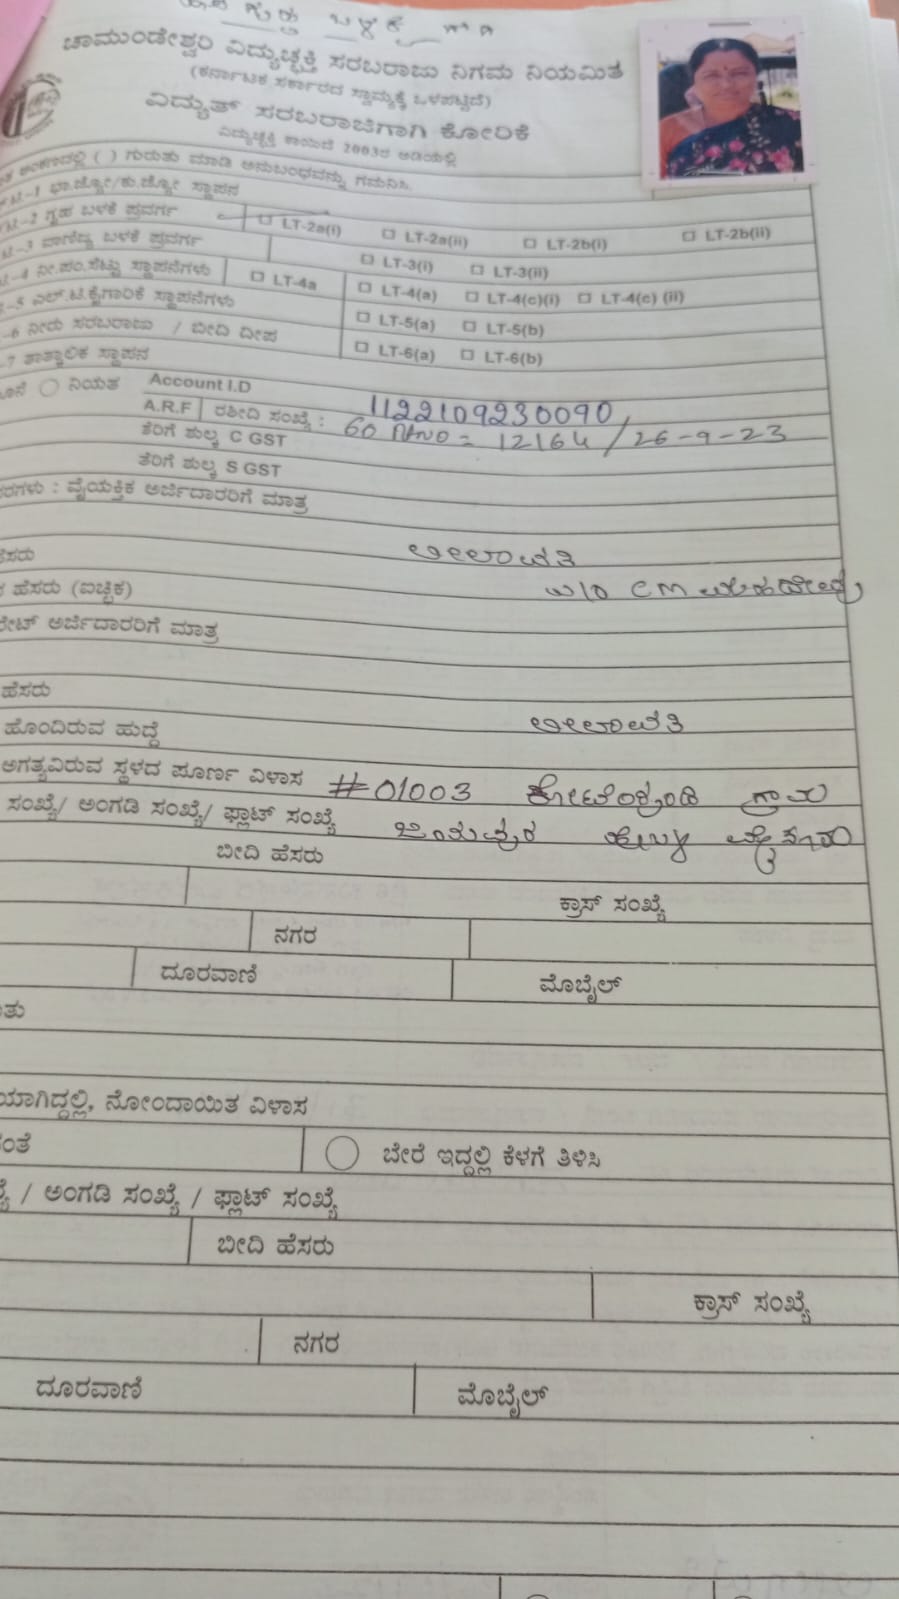 ಚಾಮುಂಡೇಶ್ವರಿ ವಿದ್ಯುಚ್ಛಕ್ತಿ ಸರಬರಾಜು ನಿಗಮ ನಿಯಮಿತ
(ಕರ್ನಾಟಕ ಸರ್ಕಾರದ ಸ್ವಾಮ್ಯಕ್ಕೆ ಒಳಪಟ್ಟಿದೆ)
ವಿದ್ಯುತ್ ಸರಬರಾಜಿಗಾಗಿ ಕೋರಿಕೆ
ವಿದ್ಯುಚ್ಛಕ್ತಿ ಕಾಯಿದೆ 2003ರ ಅಡಿಯಲ್ಲಿ
( ) ಗುರುತು ಮಾಡಿ ಅನುಬಂಧವನ್ನು ಗಮನಿಸಿ.
-1 ಭಾ.ಜ್ಯೋ/ಕು.ಜ್ಯೋ ಸ್ಥಾಪನ
-2 ಗೃಹ ಬಳಕೆ ಪ್ರವರ್ಗ LT-2a(i) LT-2a(ii) LT-2b(i) LT-2b(ii)
-3 ವಾಣಿಜ್ಯ ಬಳಕೆ ಪ್ರವರ್ಗ LT-3(i) LT-3(ii)
-4 ನೀ.ಪಂ.ಸೆಟ್ಟು ಸ್ಥಾಪನೆಗಳು LT-4a LT-4(a) LT-4(c)(i) LT-4(c) (ii)
-5 ಎಲ್.ಟಿ.ಕೈಗಾರಿಕೆ ಸ್ಥಾಪನೆಗಳು LT-5(a) LT-5(b)
-6 ನೀರು ಸರಬರಾಜು / ಬೀದಿ ದೀಪ LT-6(a) LT-6(b)
-7 ತಾತ್ಕಾಲಿಕ ಸ್ಥಾಪನ
ನಿಯತ Account I.D
A.R.F ರಶೀದಿ ಸಂಖ್ಯೆ : 1122109230090
ತೆರಿಗೆ ಶುಲ್ಕ C GST 12164 / 26-9-23
ತೆರಿಗೆ ಶುಲ್ಕ S GST
: ವೈಯಕ್ತಿಕ ಅರ್ಜಿದಾರರಿಗೆ ಮಾತ್ರ
ಲೀಲಾವತಿ
ಹೆಸರು (ಐಚ್ಛಿಕ) W/O CM
ಅರ್ಜಿದಾರರಿಗೆ ಮಾತ್ರ
ಹೆಸರು
ಹೊಂದಿರುವ ಹುದ್ದೆ ಲೀಲಾವತಿ
ಅಗತ್ಯವಿರುವ ಸ್ಥಳದ ಪೂರ್ಣ ವಿಳಾಸ #01003 ಗ್ರಾಮ
ಸಂಖ್ಯೆ/ ಅಂಗಡಿ ಸಂಖ್ಯೆ/ ಫ್ಲಾಟ್ ಸಂಖ್ಯೆ ಜಯಪುರ ಹೋಬಳಿ
ಬೀದಿ ಹೆಸರು
ಕ್ರಾಸ್ ಸಂಖ್ಯೆ
ನಗರ
ದೂರವಾಣಿ ಮೊಬೈಲ್
ನೋಂದಾಯಿತ ವಿಳಾಸ
ಬೇರೆ ಇದ್ದಲ್ಲಿ ಕೆಳಗೆ ತಿಳಿಸಿ
/ ಅಂಗಡಿ ಸಂಖ್ಯೆ / ಫ್ಲಾಟ್ ಸಂಖ್ಯೆ
ಬೀದಿ ಹೆಸರು
ಕ್ರಾಸ್ ಸಂಖ್ಯೆ
ನಗರ
ದೂರವಾಣಿ ಮೊಬೈಲ್